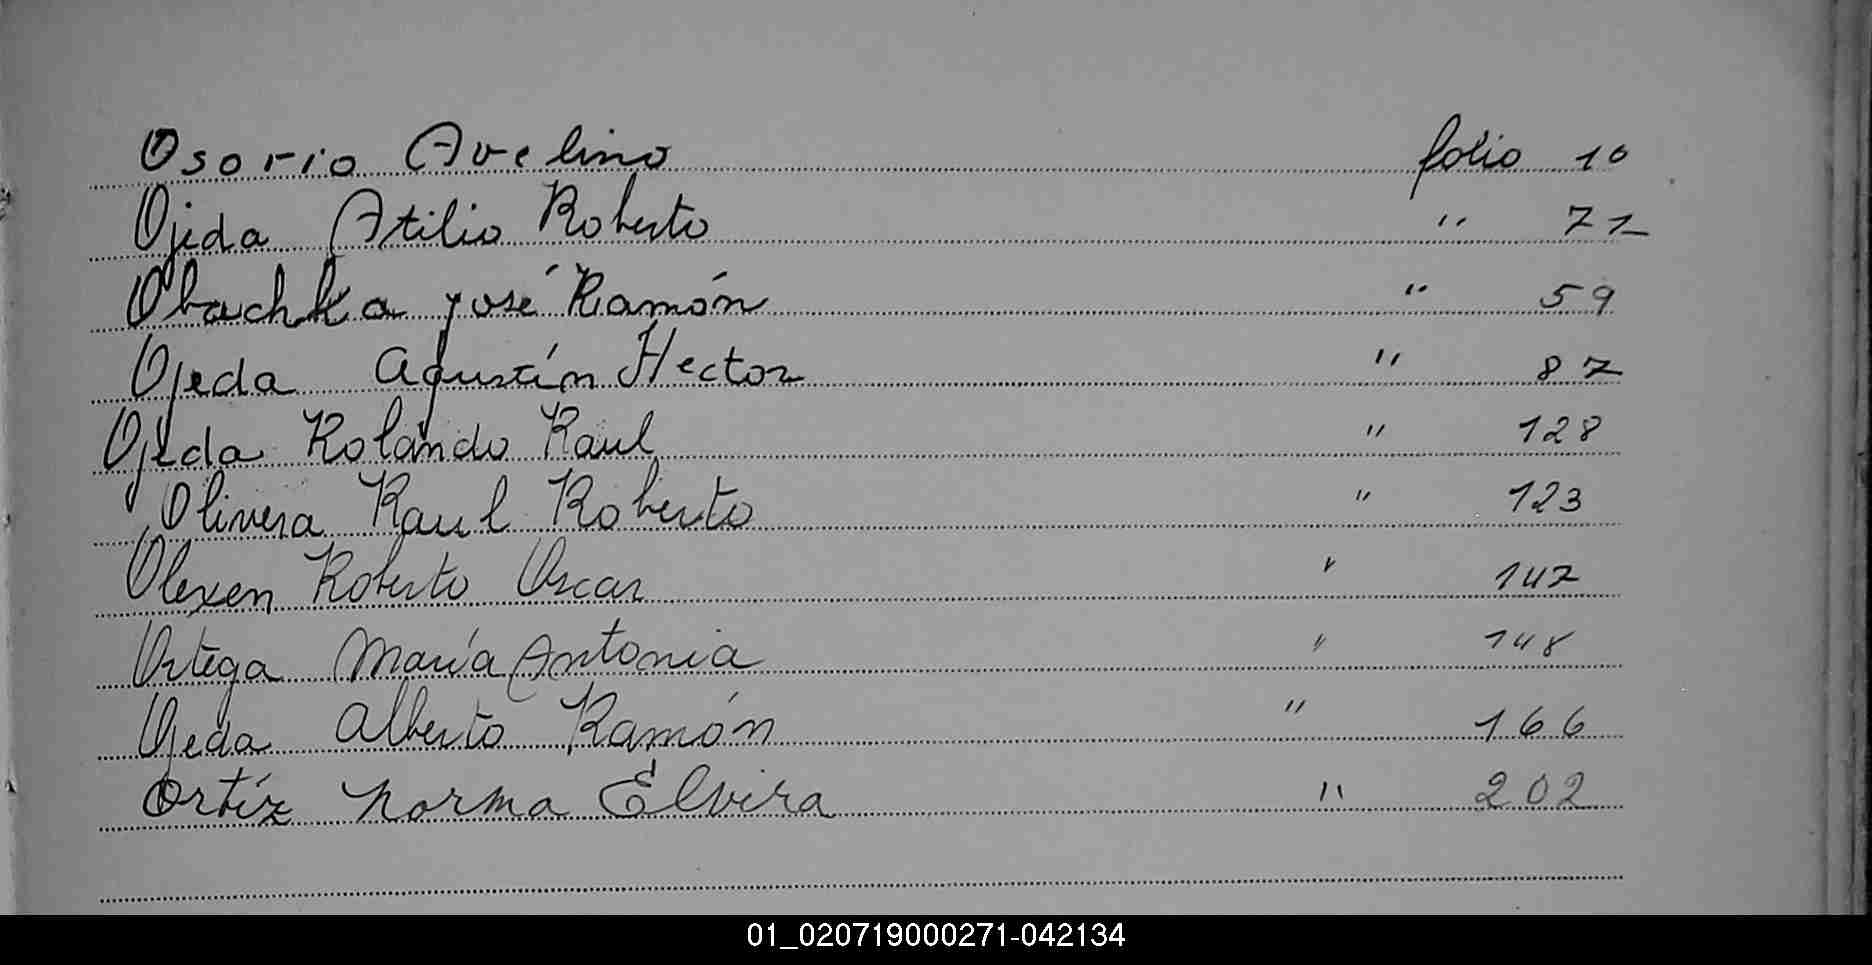 Osorio Avelino folio 10
Ojeda Atilio Roberto " 71
Obuchka José Ramón " 59
Ojeda Agustín Hector " 87
Ojeda Rolando Raul " 128
Olivera Raul Roberto " 123
Olexen Roberto Oscar " 147
Ortega María Antonia " 148
Ojeda Alberto Ramón " 166
Ortíz Norma Elvira " 202
01_020719000271-042134